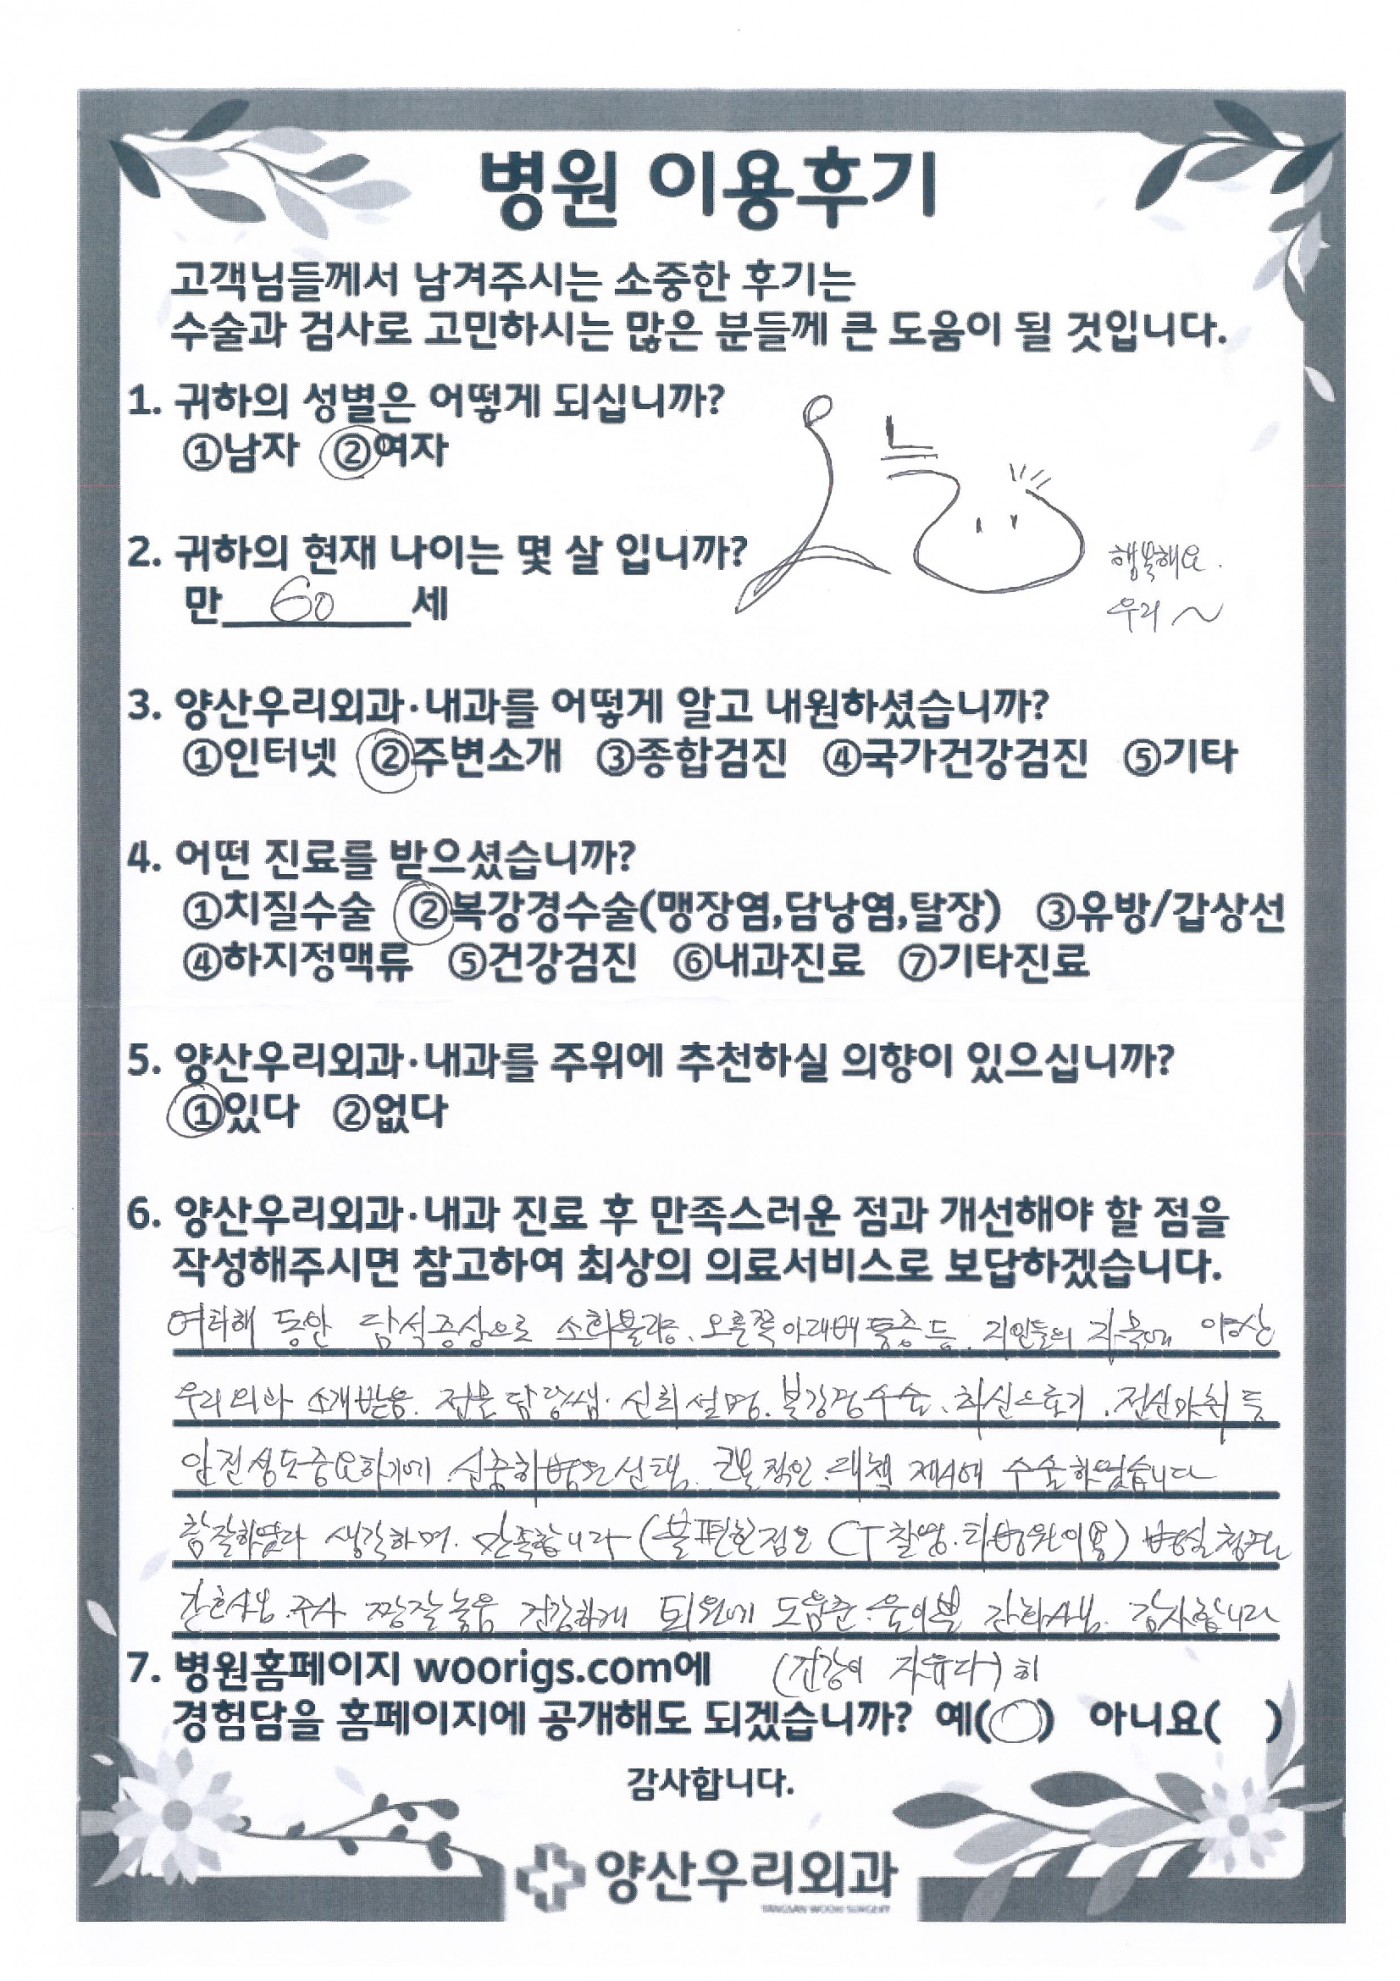 병원 이용후기
고객님들께서 남겨주시는 소중한 후기는
수술과 검사로 고민하시는 많은 분들께 큰 도움이 될 것입니다.
1. 귀하의 성별은 어떻게 되십니까?
①남자 ②여자
2. 귀하의 현재 나이는 몇 살 입니까?
만 60 세
행복해요.
우리~
3. 양산우리외과·내과를 어떻게 알고 내원하셨습니까?
①인터넷 ②주변소개 ③종합검진 ④국가건강검진 ⑤기타
4. 어떤 진료를 받으셨습니까?
①치질수술 ②복강경수술(맹장염,담낭염,탈장) ③유방/갑상선
④하지정맥류 ⑤건강검진 ⑥내과진료 ⑦기타진료
5. 양산우리외과·내과를 주위에 추천하실 의향이 있으십니까?
①있다 ②없다
6. 양산우리외과·내과 진료 후 만족스러운 점과 개선해야 할 점을
작성해주시면 참고하여 최상의 의료서비스로 보답하겠습니다.
여러해 동안 담석증상으로 소화불량, 오른쪽아래배통증 등. 지인들의 양산
우리외과 소개받음. 전문 담당쌤. 신뢰 설명. 복강경수술. 최신의료기. 전신마취 등
안전성도중요하기에 신중히병원선택. 근본적인 대책 수술하였습니다
참잘하였다 생각하며. 만족합니다 (불편한점은 CT촬영. 타병원이용) 병실청결
간호사님 주사 짱잘놓음 건강하게 퇴원에 도움준 간호사님. 감사합니다
(건강이 자유다)
7. 병원홈페이지 woorigs.com에
경험담을 홈페이지에 공개해도 되겠습니까? 예(○) 아니요( )
감사합니다.
양산우리외과
YANGSAN WOORI SURGERY